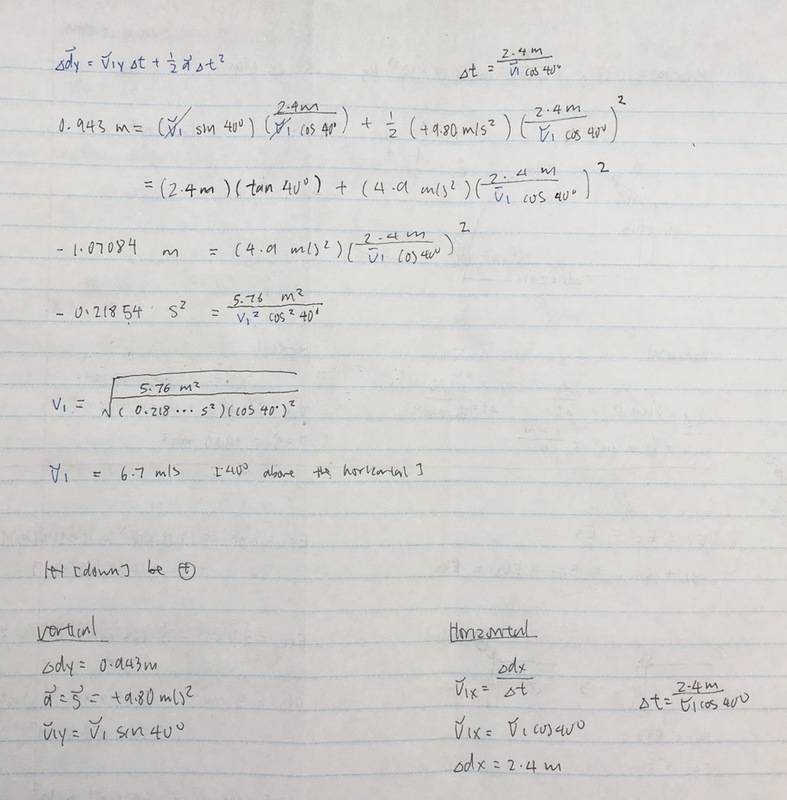 Δd⃗y = v⃗1y Δt + 1/2 a⃗ Δt²
Δt = 2.4 m / v⃗1 cos 40°
0.943 m = (v⃗1 sin 40°) (2.4 m / v⃗1 cos 40°) + 1/2 (+9.80 m/s²) (2.4 m / v⃗1 cos 40°)²
= (2.4 m) (tan 40°) + (4.9 m/s²) (2.4 m / v⃗1 cos 40°)²
- 1.07084 m = (4.9 m/s²) (2.4 m / v⃗1 cos 40°)²
- 0.21854 s² = 5.76 m² / v1² cos² 40°
v1 = √(5.76 m² / (0.218... s²)(cos 40°)²)
v⃗1 = 6.7 m/s [40° above the horizontal]
let [down] be ⊕
Vertical
Δdy = 0.943 m
a⃗ = g⃗ = +9.80 m/s²
v⃗1y = v⃗1 sin 40°
Horizontal
v⃗1x = Δdx / Δt
Δt = 2.4 m / v⃗1 cos 40°
v⃗1x = v⃗1 cos 40°
Δdx = 2.4 m